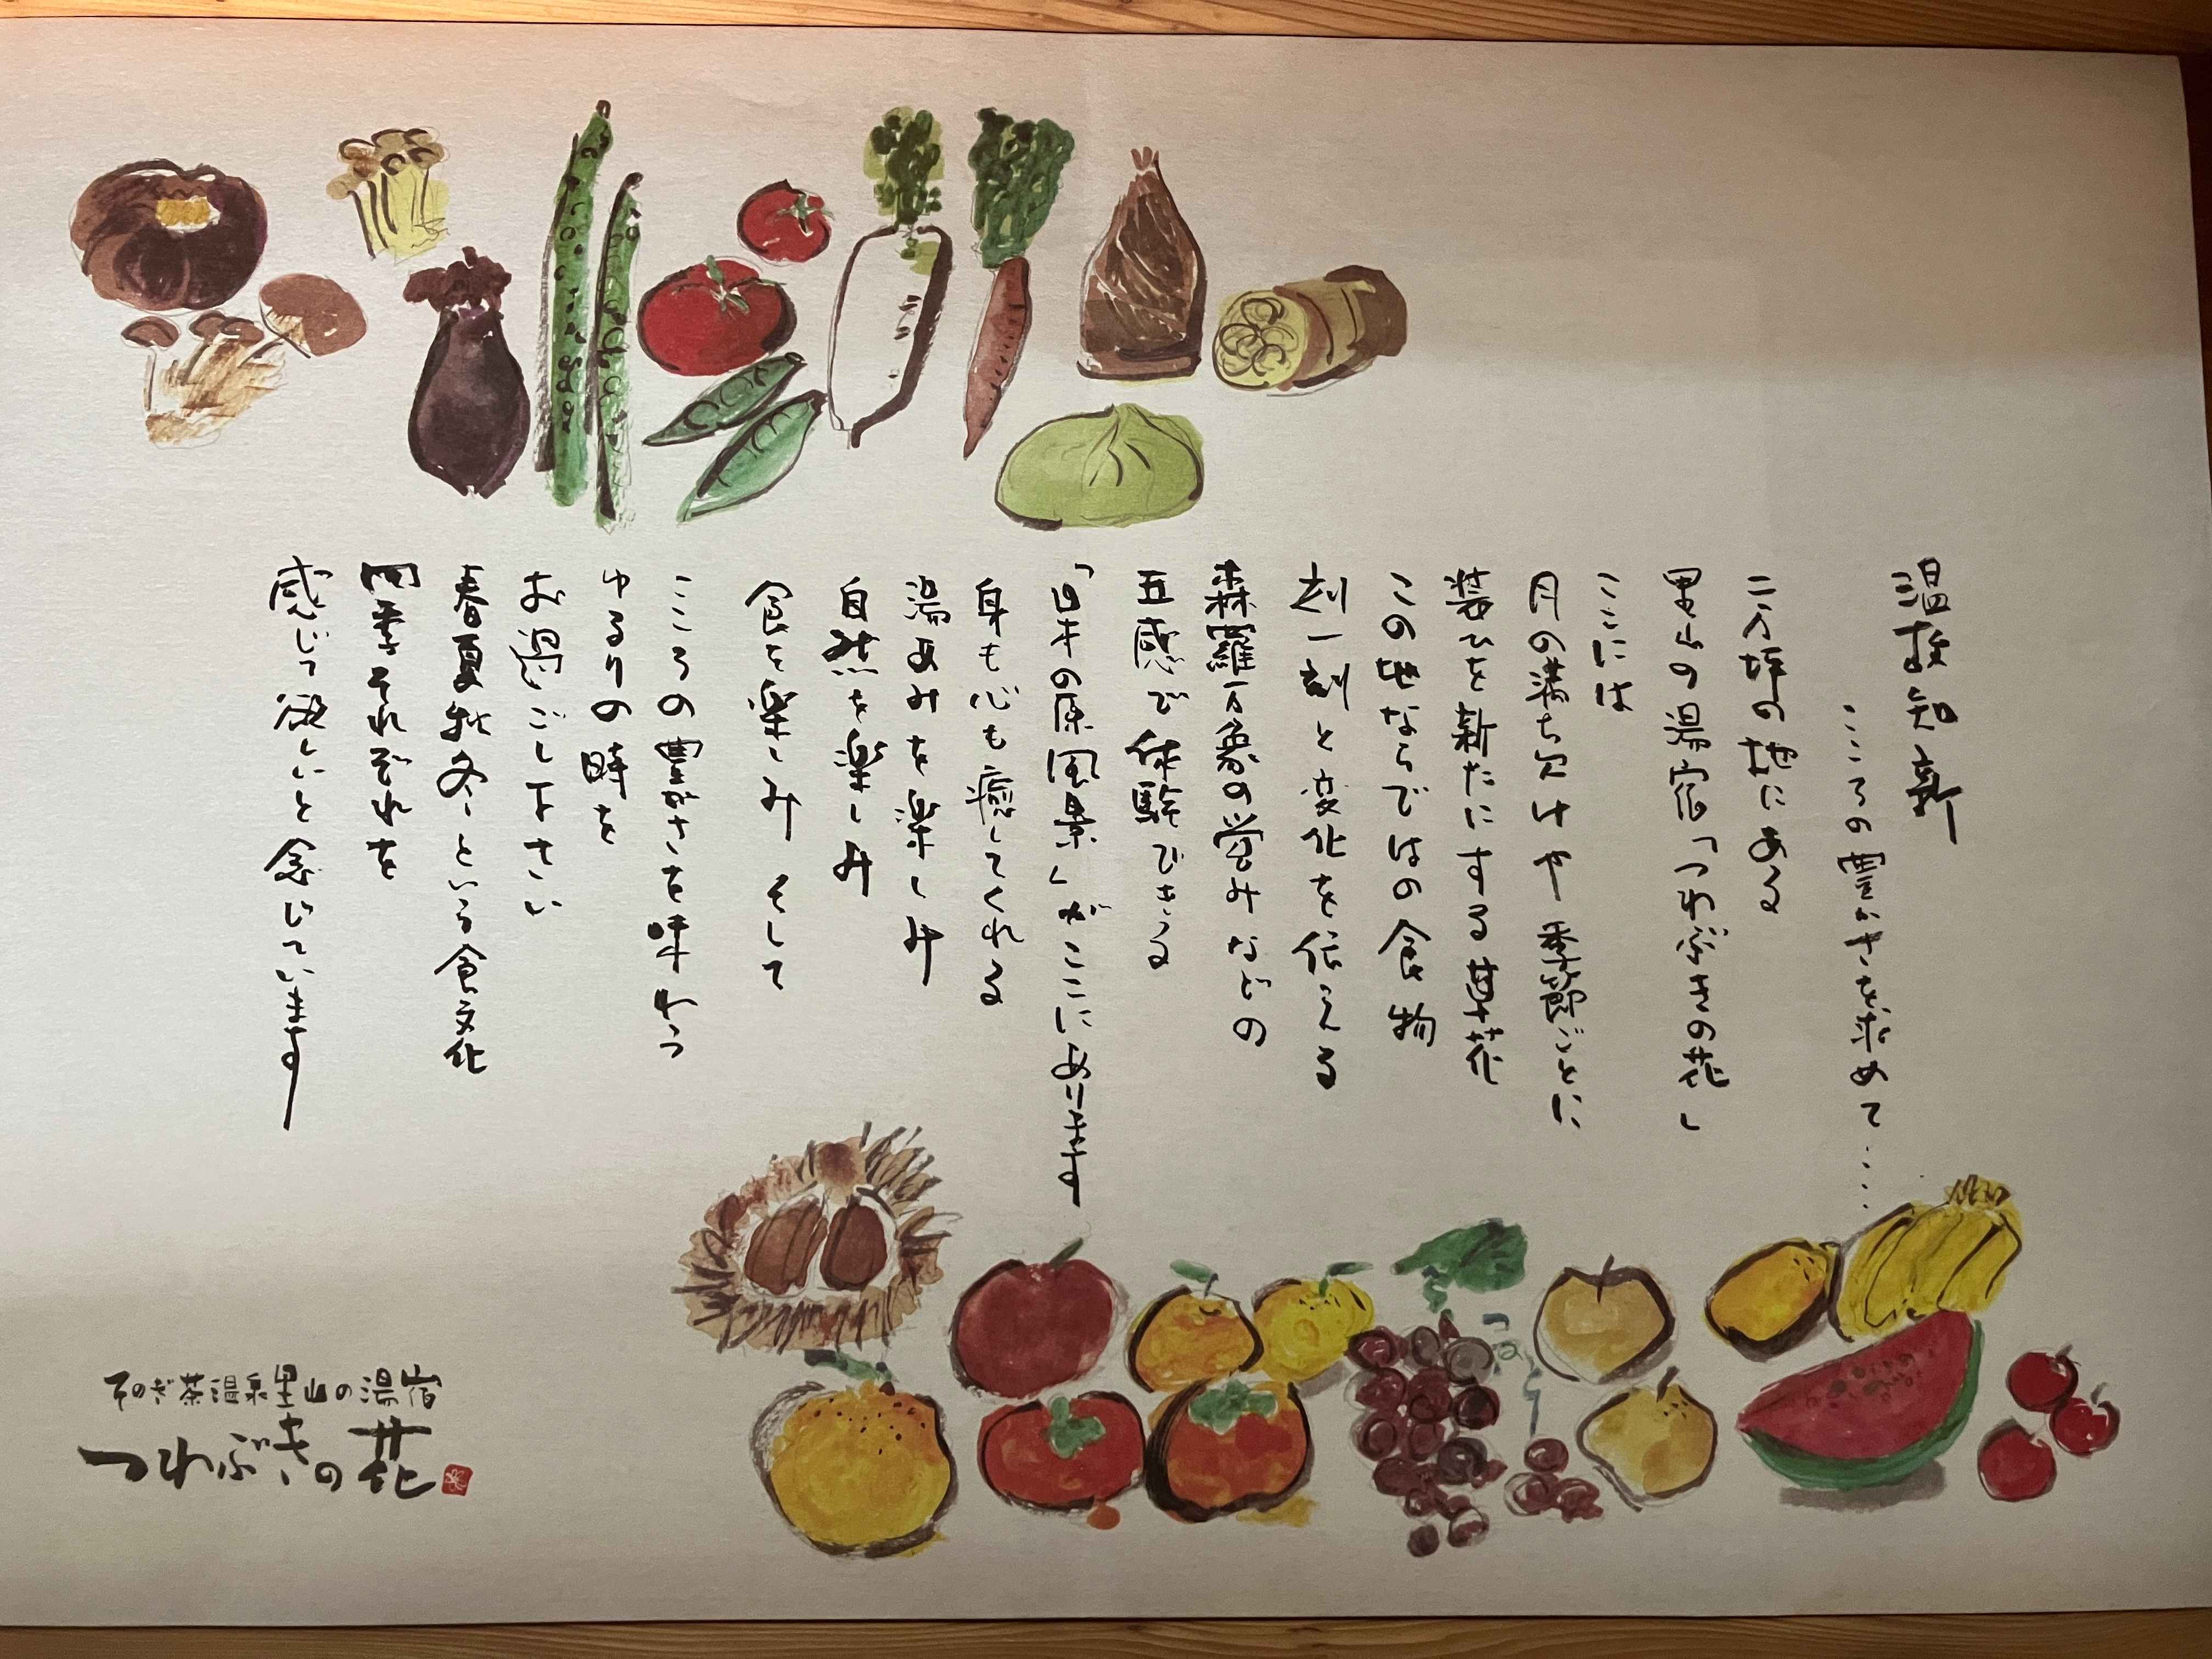 温故知新
こころの豊かさを求めて……
二万坪の地にある
里山の湯宿「つわぶきの花」
ここには
月の満ち欠けや季節ごとに
装ひを新たにする草花
この地ならではの食物
刻一刻と変化を伝える
森羅万象の営みなどの
五感で体験できうる
「日本の原風景」がここにあります
身も心も癒してくれる
湯あみを楽しみ
自然を楽しみ
食を楽しみ そして
こころの豊かさを味わう
ゆるりの時を
お過ごし下さい
春夏秋冬という食文化
四季それぞれを
感じて欲しいと念じています
そのぎ茶温泉里山の湯宿
つわぶきの花